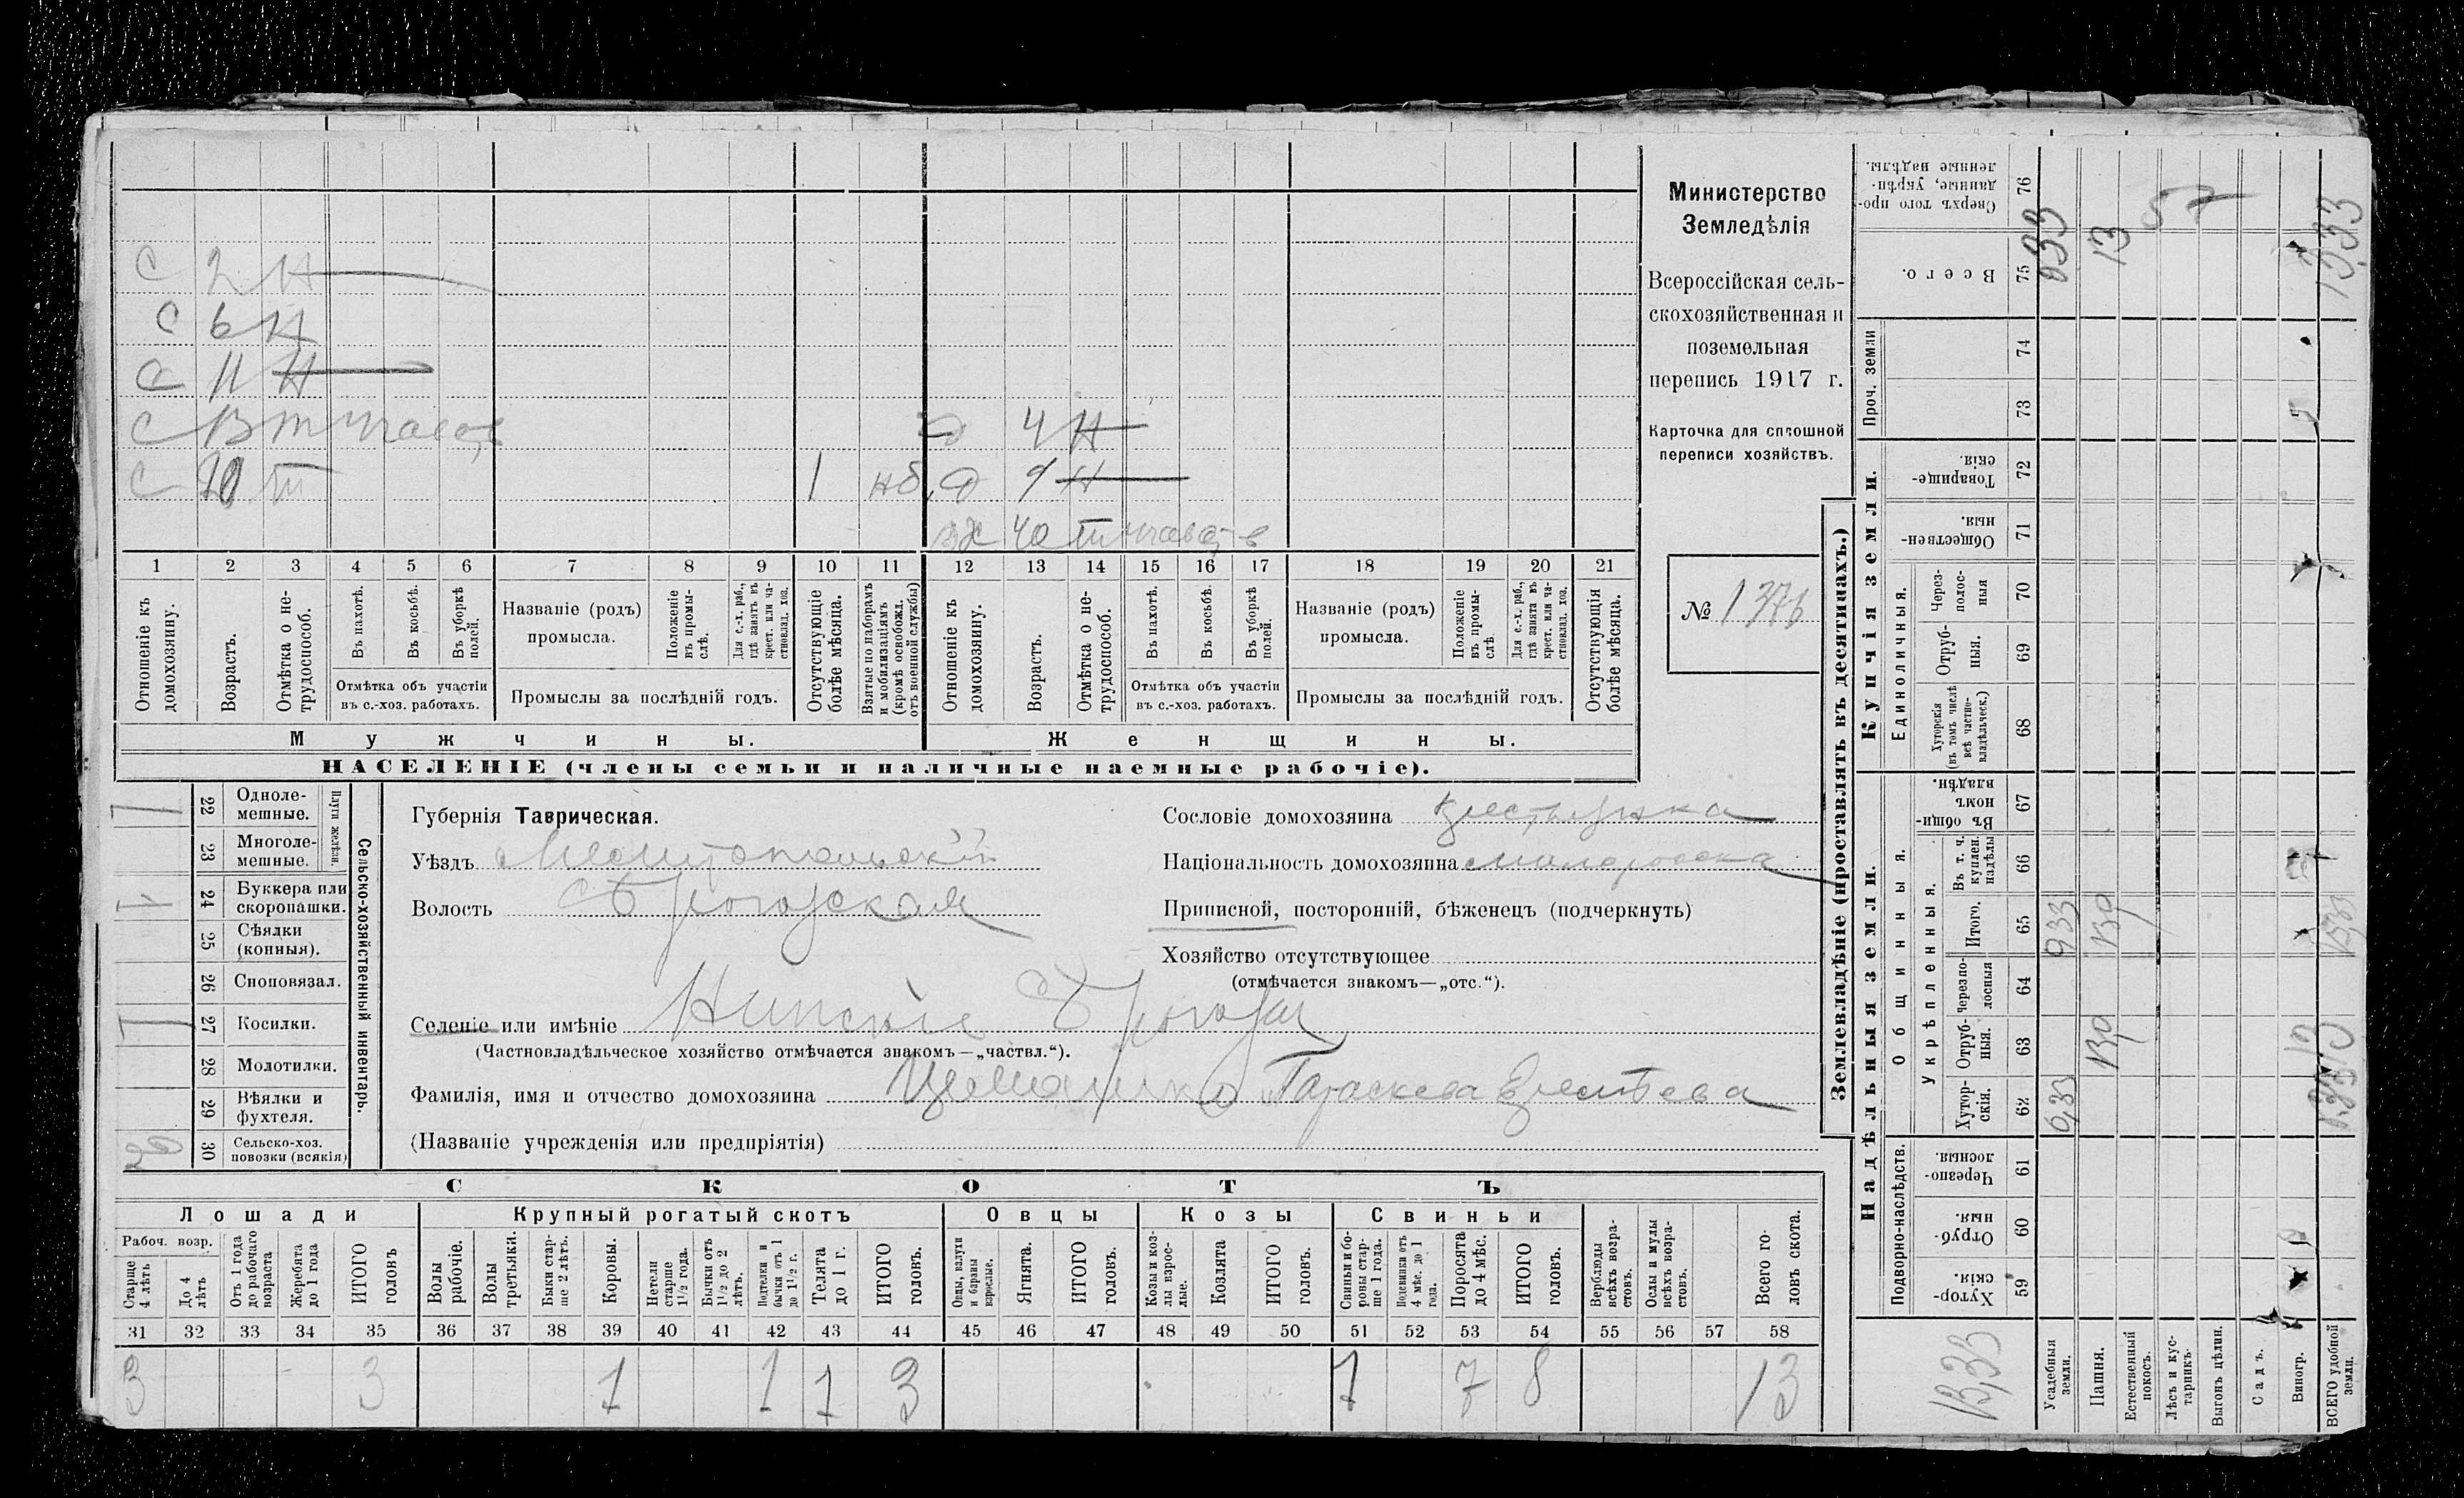 Министерство
Земледѣлія
Всероссійская сель-
скохозяйственная и
поземельная
перепись 1917 г.
Карточка для сплошной
переписи хозяйствъ.
№ 1376
С 2 Н
С 6 Н
С 11 Н
С 13
С 20 1
д 4 Н
д 9 Н
40
1 2 3 4 5 6 7 8 9 10 11 12 13 14 15 16 17 18 19 20 21
Отношеніе къ домохозяину.
Возрастъ.
Отмѣтка о не-трудоспособ.
Въ пахотѣ.
Въ косьбѣ.
Въ уборкѣ полей.
Отмѣтка объ участіи
въ с.-хоз. работахъ.
Названіе (родъ)
промысла.
Положеніе въ промы-слѣ.
Для с.-х. раб., гдѣ занятъ въ крест. или ча-стновлад. хоз.
Промыслы за послѣдній годъ.
Отсутствующіе болѣе мѣсяца.
Взятые по наборамъ и мобилизаціямъ (кромѣ освобожд. отъ военной службы)
Отношеніе къ домохозяину.
Возрастъ.
Отмѣтка о не-трудоспособ.
Въ пахотѣ.
Въ косьбѣ.
Въ уборкѣ полей.
Отмѣтка объ участіи
въ с.-хоз. работахъ.
Названіе (родъ)
промысла.
Положеніе въ промы-слѣ.
Для с.-х. раб., гдѣ занята въ крест. или ча-стновлад. хоз.
Промыслы за послѣдній годъ.
Отсутствующія болѣе мѣсяца.
Мужчины.
Женщины.
НАСЕЛЕНІЕ (члены семьи и наличные наемные рабочіе).
22 Одноле-мешные.
23 Многоле-мешные.
Плуги желѣзн.
24 Буккера или скоропашки.
25 Сѣялки (конныя).
26 Сноповязал.
27 Косилки.
28 Молотилки.
29 Вѣялки и фухтеля.
30 Сельско-хоз. повозки (всякія)
Сельско-хозяйственный инвентарь.
Губернія Таврическая.
Уѣздъ Мелитопольскій
Волость Сѣрогозская
Селеніе или имѣніе Нижніе Сѣрогозы
(Частновладѣльческое хозяйство отмѣчается знакомъ—„частвл.“).
Фамилія, имя и отчество домохозяина
(Названіе учрежденія или предпріятія)
Сословіе домохозяина крестьянка
Національность домохозяина малоросска
Приписной, посторонній, бѣженецъ (подчеркнуть)
Хозяйство отсутствующее
(отмѣчается знакомъ—„отс.“).
СКОТЪ
Лошади
Крупный рогатый скотъ
Овцы
Козы
Свиньи
Рабоч. возр.
Старше 4 лѣтъ
До 4 лѣтъ
Отъ 1 года до рабочаго возраста
Жеребята до 1 года
ИТОГО головъ
Волы рабочіе.
Волы третьяки.
Быки стар-ше 2 лѣтъ.
Коровы.
Нетели старше 1½ года.
Бычки отъ 1½ до 2 лѣтъ.
Подтелки и бычки отъ 1 до 1½ г.
Телята до 1 г.
ИТОГО головъ.
Овцы, валухи и бараны взрослые.
Ягнята.
ИТОГО головъ.
Козы и коз-лы взрос-лые.
Козлята
ИТОГО головъ.
Свиньи и бо-ровы стар-ше 1 года.
Подсвинки отъ 4 мѣс. до 1 года.
Поросята до 4 мѣс.
ИТОГО головъ.
Верблюды всѣхъ возра-стовъ.
Ослы и мулы всѣхъ возра-стовъ.
Всего го-ловъ скота.
31 32 33 34 35 36 37 38 39 40 41 42 43 44 45 46 47 48 49 50 51 52 53 54 55 56 57 58
3 3 1 1 1 3 1 7 8 13
Землевладѣніе (проставлять въ десятинахъ.)
Надѣльныя земли.
Купчія земли.
Проч. земли
Подворно-наслѣдств.
Общинныя.
Укрѣпленныя.
Единоличныя.
59 Хутор-скія.
60 Отруб-ныя.
61 Черезпо-лосныя.
62 Хутор-скія.
63 Отруб-ныя.
64 Черезпо-лосныя
65 Итого.
66 Въ т. ч. куплен. надѣлы
67 Въ общи-номъ владѣн.
68 Хуторскія (въ томъ числѣ всѣ частно-владѣльческ.)
69 Отруб-ныя.
70 Через-полос-ныя
71 Обществен-ныя.
72 Товарище-скія.
73
74
75 Всего.
76 Сверхъ того про-данные, укрѣп-ленные надѣлы.
Усадебныя земли.
Пашня.
Естественный покосъ.
Лѣсъ и кус-тарникъ.
Выгонъ цѣлин.
Садъ.
Виногр.
ВСЕГО удобной земли.
13,33
0,33
0,33
13